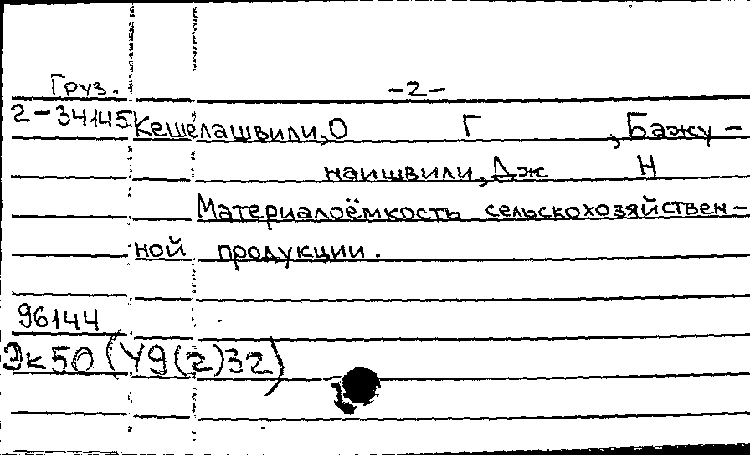 Груз. -2-
2-34145 Кешелашвили, О Г , Бажу-
наишвили, Дж Н
Материалоёмкость сельскохозяйствен-
ной продукции.
96144
Эк50 (У9(2)32)